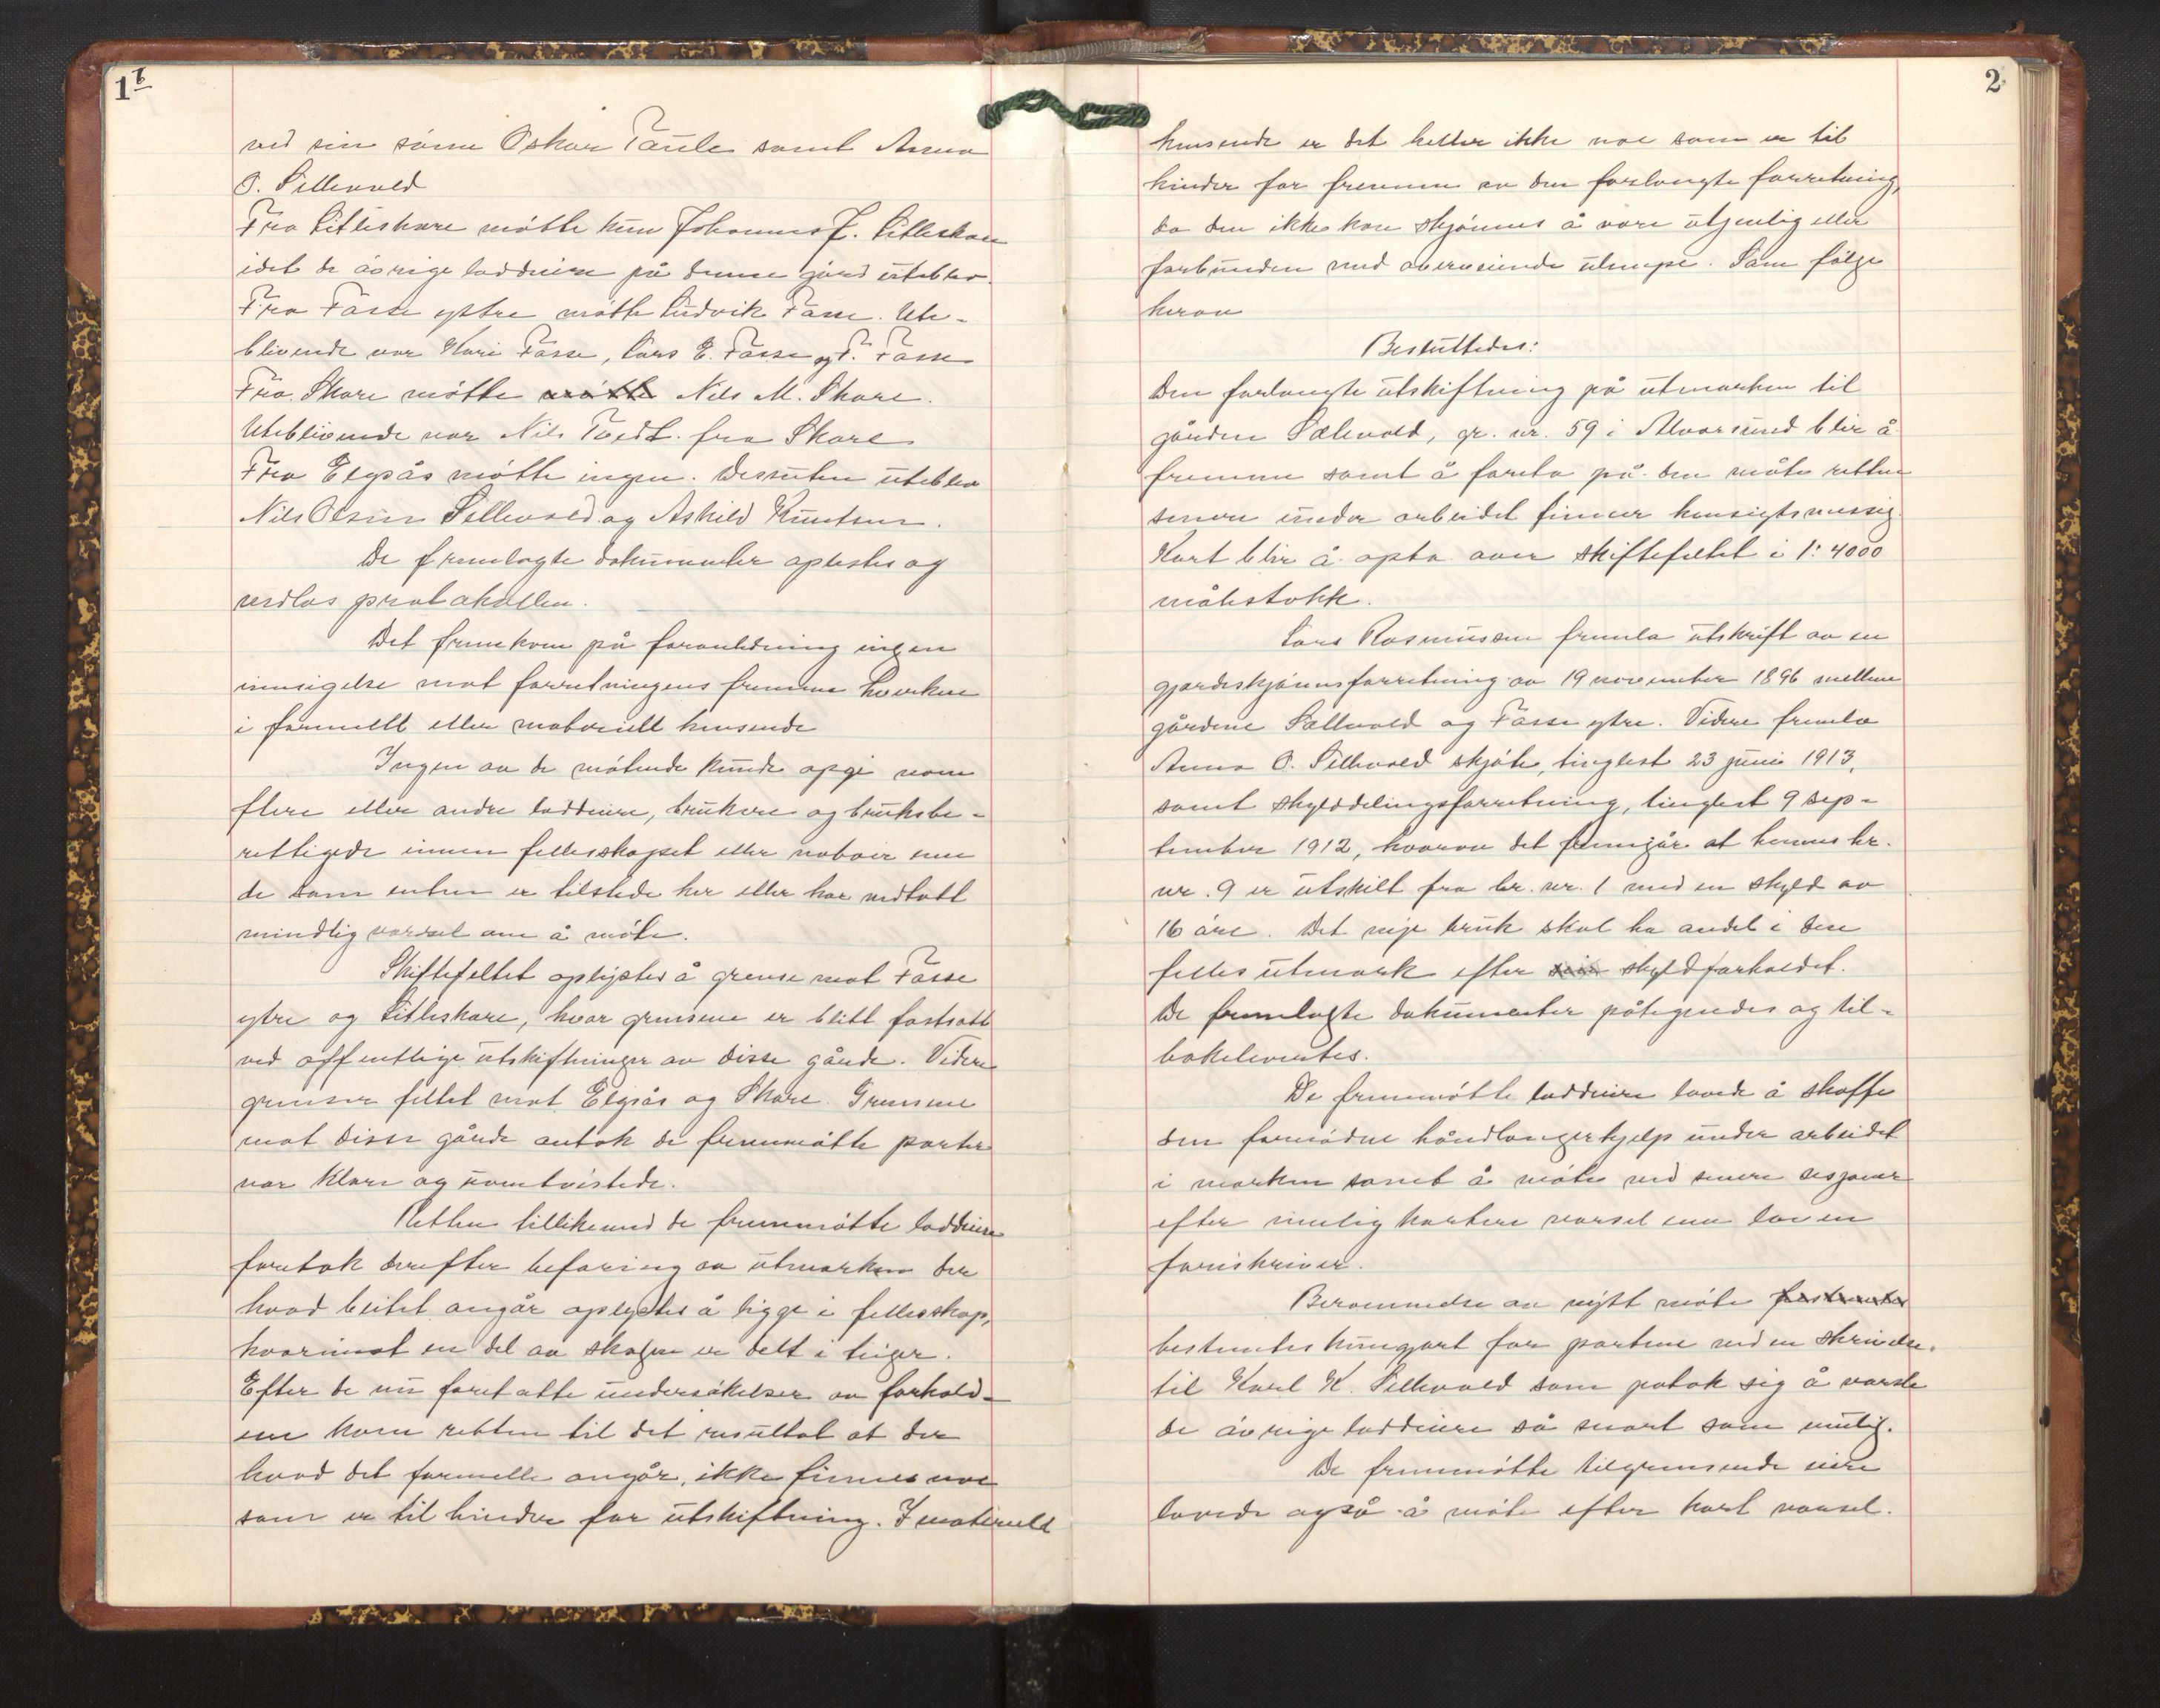 1 b
ved sin sönn Oskar Taule samt Anna
O. Sellevold
Fra Litleskare mötte kun Johannes J. Litleskare
idet de övrige loddeiere på denne gård uteblev.
Fra Fosse ytre mötte Ludvik Fosse. Ute-
blivende var Kari Fosse, Lars E. Fosse og T. Fosse
Fra Skare mötte mötte Nils M. Skare.
Uteblivende var Nils Tvedt fra Skare
Fra Elgsås mötte ingen. Desuten uteblev
Nils Olsen Sellevold og Askild Knutsen.
De fremlagte dokumenter oplestes og
vedlas protokollen.
Det fremkom på foranledning ingen
innsigelse mot forretningens fremme hverken
i formell eller materiell hensende
Ingen av de mötende kunde opgi navn
flere eller andre loddeiere, brukere og bruksbe-
rettigede innen fellesskapet eller naboer enn
de som enten er tilstede her eller har vedtatt
mindlig varsel om å möte.
Skiftefeltet oplystes å grense mot Fosse
ytre og Litleskare, hvor grensene er blitt fastsatt
ved offentlige utskiftninger av disse gårde. Videre
grenser feltet mot Elgsås og Skare. Grensene
mot disse gårde antok de fremmötte parter
var klare og uomtvistede.
Retten tillikemed de fremmötte loddeiere
foretok derefter befaring av utmarken der
hvad beitet angår oplystes å ligge i fellesskap,
hvorimot en del av skogen er delt i teiger.
Efter de nu foretatte undersökelser av forhold-
ene kom retten til det resultat at der
hvad det formelle angår, ikke finnes noe
som er til hinder for utskiftning. I materiell
2
hensende er det heller ikke noe som er til
hinder for fremme av den forlangte forretning,
da den ikke kan skjönnes å være utjenlig eller
forbunden med overveiende ulempe. Som fölge
herav
Besluttedes:
Den forlangte utskiftning på utmarken til
gården Sælevold, gr. nr. 59 i Alversund blir å
fremme samt å foreta på den måte retten
senere under arbeidet finner hensigtsmessig.
Kart blir å opta over skiftefeltet i 1:4000
målestokk.
Lars Rasmussen fremla utskrift av en
gjerdeskjönnsforretning av 19 november 1896 mellem
gårdene Sællevold og Fosse ytre. Videre fremla
Anna O. Sellevold skjöte, tinglest 23 juni 1913,
samt skylddelingsforretning, tinglest 9 sep-
tember 1912, hvorav det fremgår at hennes br.
nr. 9 er utskilt fra br. nr. 1 med en skyld av
16 öre. Det nye bruk skal ha andel i den
felles utmark efter sin skyldforholdet.
De fremlagte dokumenter påtegnedes og til-
bakelevertes.
De fremmötte loddeiere lovde å skaffe
den fornödne håndlangerhjelp under arbeidet
i marken samt å möte ved senere sesjoner
efter mulig kortere varsel enn loven
foreskriver.
Berammelse av nytt möte
bestemtes kunngjort for partene ved en skrivelse
til Karl K. Sellevold som påtok sig å varsle
de övrige loddeiere så snart som mulig.
De fremmötte tilgrensende eiere
lovede også å möte efter kort varsel.